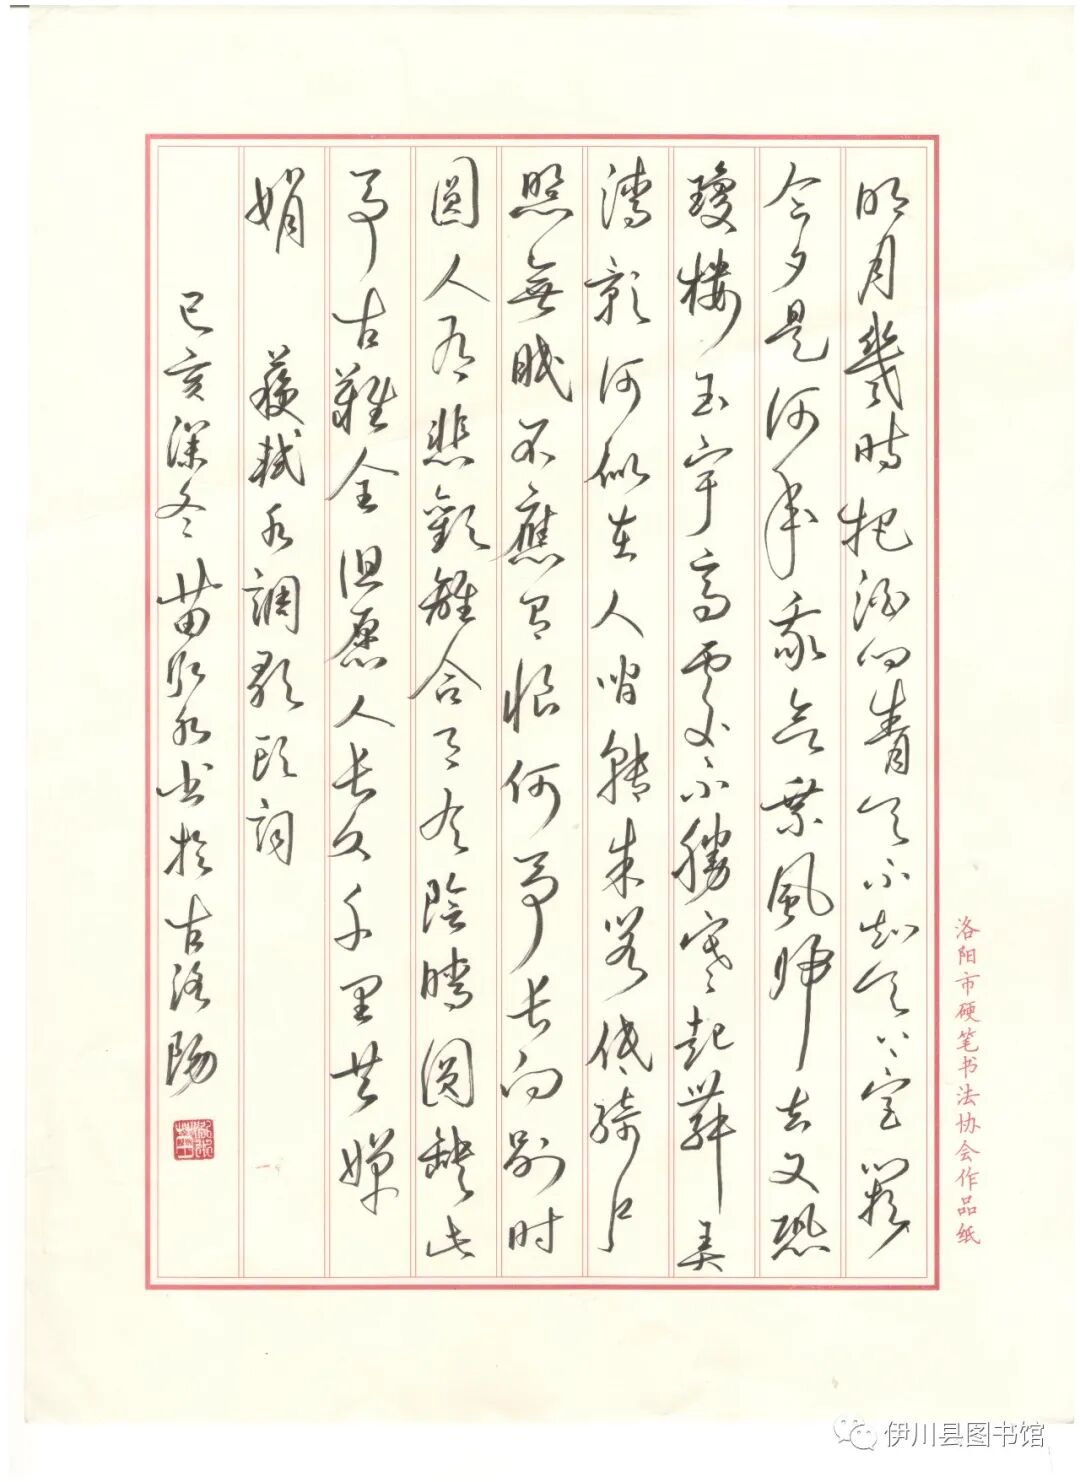 明月幾時把酒问青天不知天上宫闕
今夕是何年我欲乘風歸去又恐
瓊樓玉宇高處不勝寒起舞弄
清影何似在人間轉朱閣低綺户
照無眠不應有恨何事长向别时
圓人有悲歡離合月有陰晴圓缺此
事古難全但愿人长久千里共嬋
娟 蘇軾水調歌頭詞
己亥深冬苗水书於古洛陽
洛阳市硬笔书法协会作品纸
伊川县图书馆